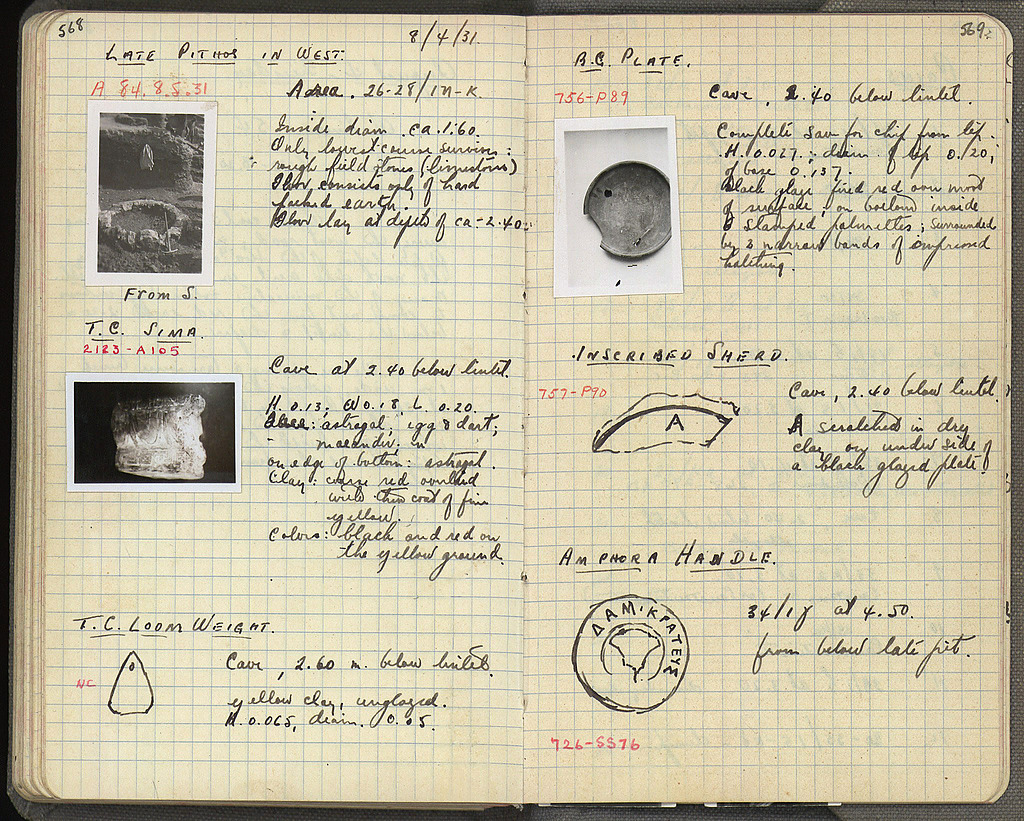 568
8/4/31.
LATE PITHOS IN WEST.
A 84. 8.5.31
Area. 26-28/ΙΗ-Κ.
Inside diam. ca. 1.60.
Only lowest course survives:
rough field stones (limestone)
Floor consists only of hard
packed earth.
Floor lay at depth of ca - 2.40
From S.
T.C. SIMA.
2123-A105
Cave at 2.40 below lintel.
H. 0.13; W 0.18, L. 0.20.
astragal, egg & dart;
maeander;
on edge of bottom: astragal.
Clay: coarse red overlaid
with thin coat of fine
yellow.
Colors: black and red on
the yellow ground.
T.C. LOOM WEIGHT.
NC
Cave, 2.60 m. below lintel.
yellow clay, unglazed.
H. 0.065, diam. 0.05.
569
B.G. PLATE.
756-P89
Cave, 2.40 below lintel.
Complete save for chip from lip.
H. 0.027; diam. of lip 0.20;
of base 0.137.
Black glaze fired red over most
of surface; on bottom inside
8 stamped palmettes; surrounded
by 3 narrow bands of impressed
hatching.
INSCRIBED SHERD.
757-P90
A
Cave, 2.40 below lintel.
A scratched in dry
clay on under side of
a black glazed plate.
AMPHORA HANDLE.
ΔΑΜΙΚΡΑΤΕΥΣ
34/ at 4.50.
from below late pit.
726-SS76